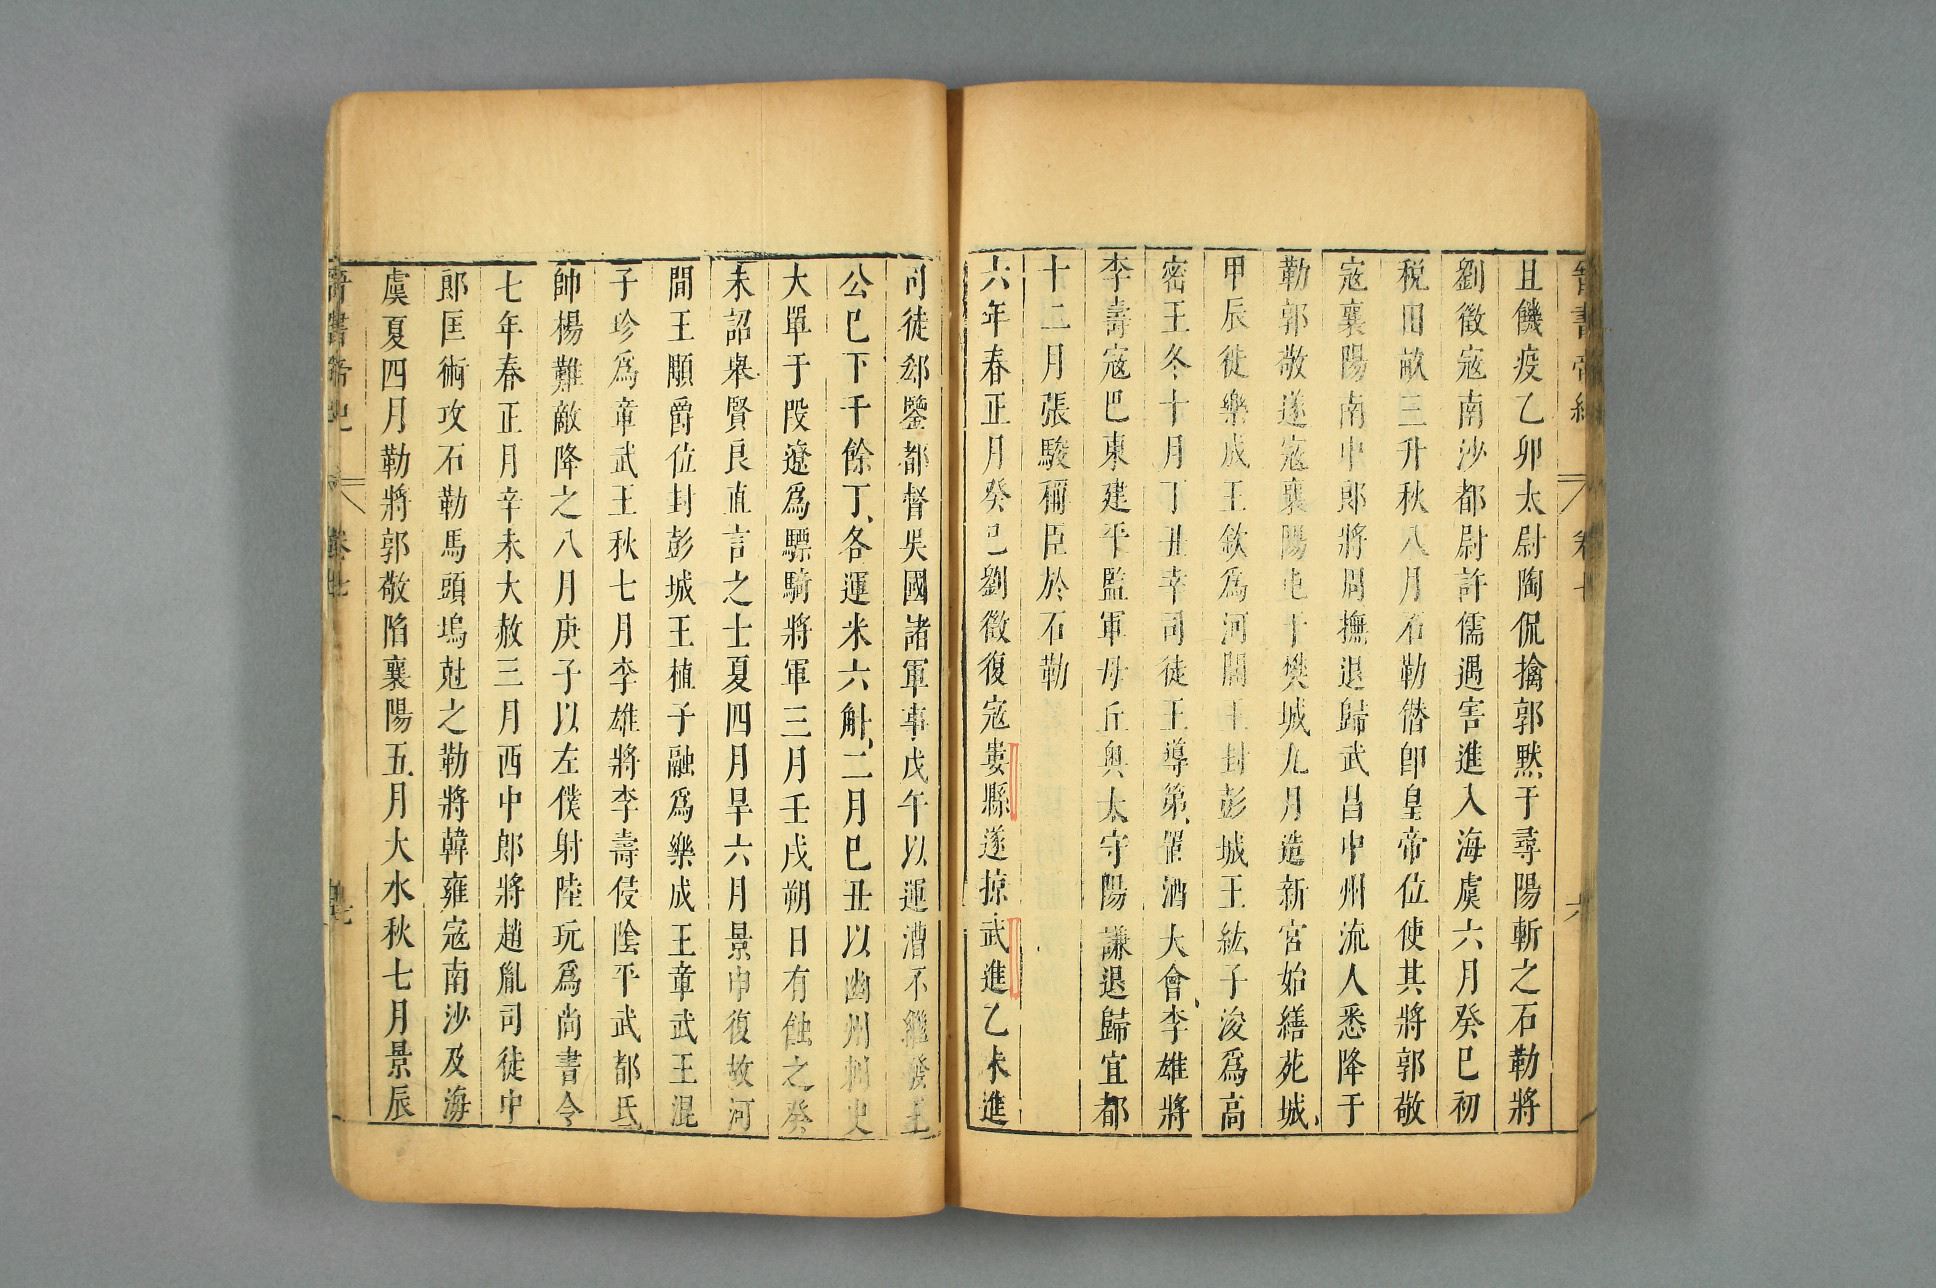 晉書帝紀 卷七 六
且饑疫乙卯太尉陶侃擒郭默于尋陽斬之石勒將
劉徵寇南沙都尉許儒遇害進入海虞六月癸巳初
稅田畝三升秋八月石勒僭卽皇帝位使其將郭敬
寇襄陽南中郎將周撫退歸武昌中州流人悉降于
勒郭敬遂寇襄陽屯于樊城九月造新宮始繕苑城
甲辰徙樂成王欽爲河間王封彭城王紘子浚爲高
密王冬十月丁丑幸司徒王導第置酒大會李雄將
李壽寇巴東建平監軍毋丘奧太守陽謙退歸宜都
十二月張駿稱臣於石勒
六年春正月癸巳劉徵復寇婁縣遂掠武進乙未進
司徒郄鑒都督吳國諸軍事戊午以運漕不繼發王
公已下千餘丁各運米六斛二月己丑以幽州刺史
大單于段遼爲驃騎將軍三月壬戌朔日有蝕之癸
未詔舉賢良直言之士夏四月旱六月景申復故河
間王顒爵位封彭城王植子融爲樂成王章武王混
子珍爲章武王秋七月李雄將李壽侵陰平武都氐
帥楊難敵降之八月庚子以左僕射陸玩爲尚書令
七年春正月辛未大赦三月西中郎將趙胤司徒中
郎匡術攻石勒馬頭塢尅之勒將韓雍寇南沙及海
虞夏四月勒將郭敬陷襄陽五月大水秋七月景辰
晉書帝紀 卷七